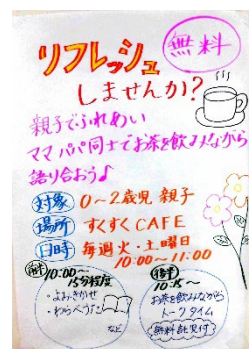 無料
リフレッシュ
しませんか?
親子でふれあい
ママパパ同士でお茶を飲みながら
語り合おう♪
対象 0~2歳児 親子
場所 すくすくCAFE
日時 毎週火・土曜日
10:00~11:00
10:00~
15分程度
・よみきかせ
・わらべうた
など
10:15~
お茶を飲みながら
トークタイム
無料託児付